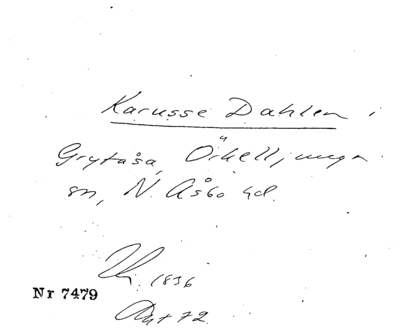 Karusse Dahlen i
Grytåsa, Örkelljunga
sn, N. Åsbo hd.
1836
Nr 7479
72